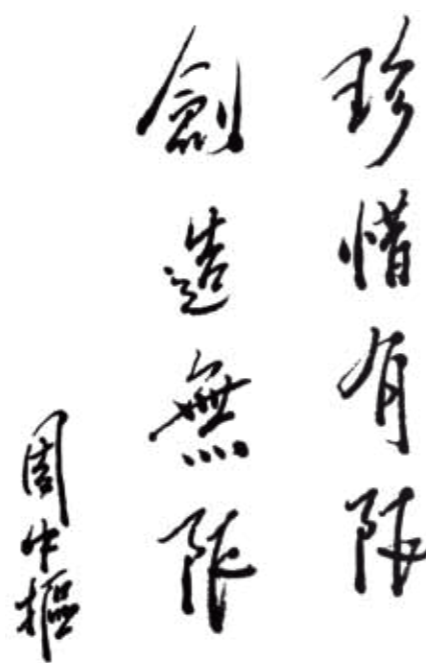 珍惜有限
創造無限
周中樞